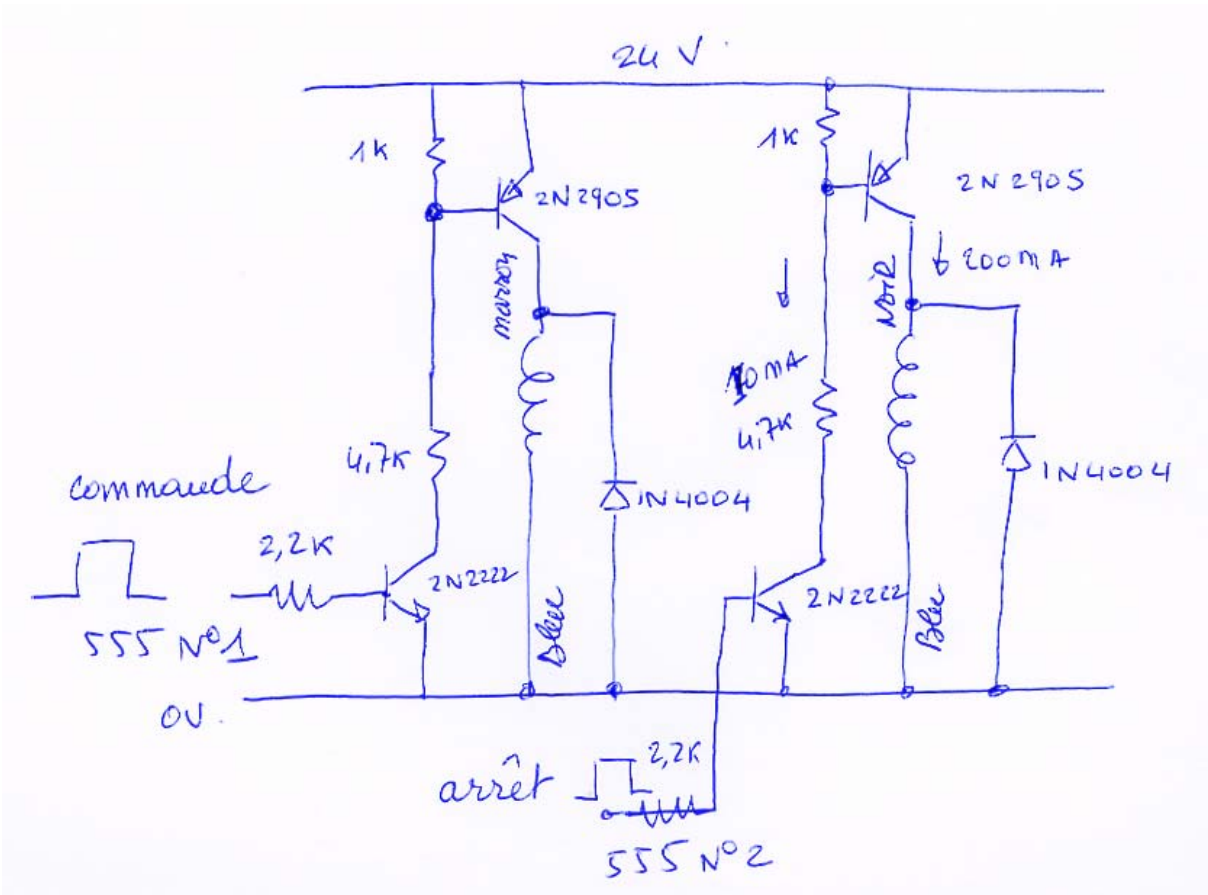 24 V
1K
2N2905
marron
4,7K
1N4004
commande
2,2K
2N2222
555 N°1
Bleu
0V.
1K
2N2905
200mA
NOIR
10mA
4,7K
1N4004
2N2222
Bleu
arrêt
2,2K
555 N°2